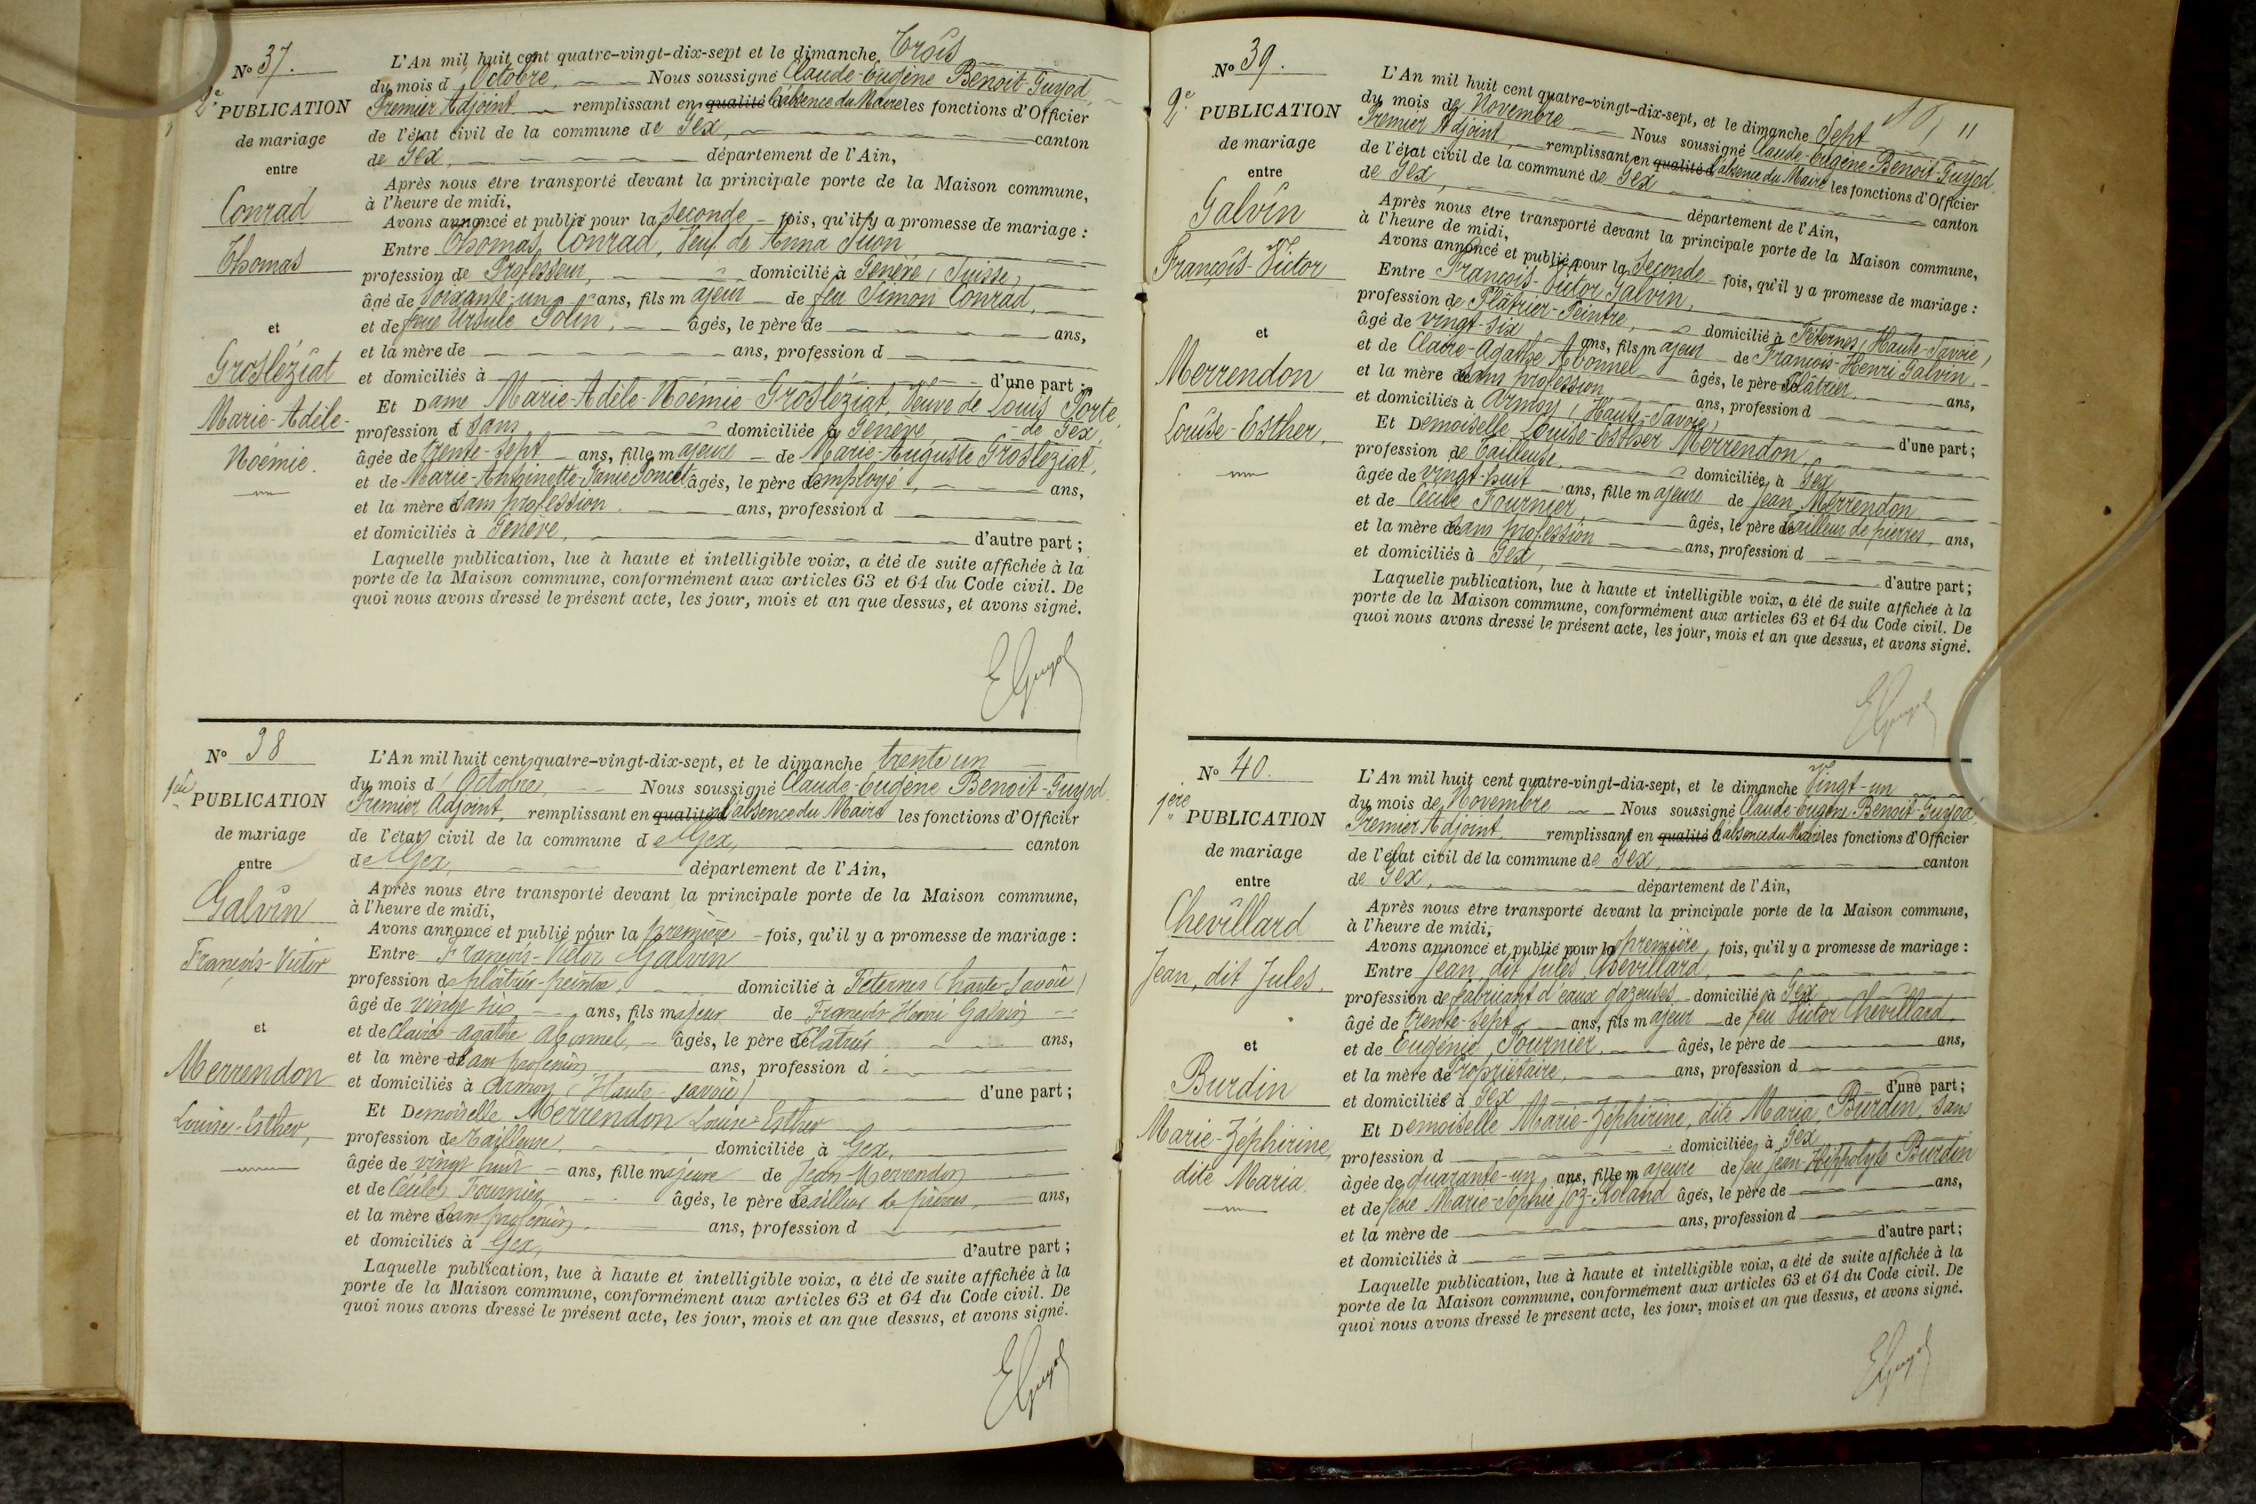 N° 37.
2e PUBLICATION
de mariage
entre
Conrad
Thomas
et
Grosléziat
Marie-Adèle-
Noémie.
L'An mil huit cent quatre-vingt-dix-sept et le dimanche Trois
du mois d'Octobre, Nous soussigné Claude-Eugène Benoit-Guyod,
Premier Adjoint remplissant en qualité l'absence du Maire les fonctions d'Officier
de l'état civil de la commune de Gex, canton
de Gex, département de l'Ain,
Après nous être transporté devant la principale porte de la Maison commune,
à l'heure de midi,
Avons annoncé et publié pour la Seconde fois, qu'il y a promesse de mariage :
Entre Thomas Conrad, Veuf de Anna Suon
profession de Professeur, domicilié à Genève (Suisse)
âgé de Soixante-un ans, fils majeur de feu Simon Conrad,
et de feue Ursule Solin, âgés, le père de ans,
et la mère de ans, profession d
et domiciliés à d'une part ;
Et Dame Marie-Adèle-Noémie Grosléziat, Veuve de Louis Porte,
profession d sans domiciliée à Genève de Gex,
âgée de trente-sept ans, fille majeure de Marie-Auguste Grosléziat,
et de Marie-Antoinette-Fanie Poncet âgés, le père de employé, ans,
et la mère d sans profession ans, profession d
et domiciliés à Genève, d'autre part ;
Laquelle publication, lue à haute et intelligible voix, a été de suite affichée à la
porte de la Maison commune, conformément aux articles 63 et 64 du Code civil. De
quoi nous avons dressé le présent acte, les jour, mois et an que dessus, et avons signé.
E Guyod
N° 38
1ère PUBLICATION
de mariage
entre
Galvin
François-Victor
et
Merrendon
Louise-Esther,
L'An mil huit cent quatre-vingt-dix-sept, et le dimanche trente un
du mois d'Octobre, Nous soussigné Claude-Eugène Benoit-Guyod
Premier Adjoint, remplissant en qualité d l'absence du Maire les fonctions d'Officier
de l'état civil de la commune de Gex, canton
de Gex, département de l'Ain,
Après nous être transporté devant la principale porte de la Maison commune,
à l'heure de midi,
Avons annoncé et publié pour la première fois, qu'il y a promesse de mariage :
Entre François-Victor Galvin
profession de plâtrier-peintre, domicilié à Féternes (haute-Savoie)
âgé de vingt six ans, fils majeur de François Henri Galvin
et de Claire-Agathe Abonnel, âgés, le père de Plâtrier ans,
et la mère de sans profession ans, profession d
et domiciliés à Armoy (Haute-Savoie) d'une part ;
Et Demoiselle Merrendon Louise-Esther
profession de Tailleuse, domiciliée à Gex,
âgée de vingt huit ans, fille majeure de Jean Merrendon
et de Cécile Fournier âgés, le père de Tailleur de pierres, ans,
et la mère de sans profession, ans, profession d
et domiciliés à Gex, d'autre part ;
Laquelle publication, lue à haute et intelligible voix, a été de suite affichée à la
porte de la Maison commune, conformément aux articles 63 et 64 du Code civil. De
quoi nous avons dressé le présent acte, les jour, mois et an que dessus, et avons signé.
E Guyod
N° 39.
2e PUBLICATION
de mariage
entre
Galvin
François-Victor
et
Merrendon
Louise-Esther,
L'An mil huit cent quatre-vingt-dix-sept, et le dimanche Sept
du mois de Novembre Nous soussigné Claude-Eugène Benoit-Guyod,
Premier Adjoint, remplissant en qualité d l'absence du Maire les fonctions d'Officier
de l'état civil de la commune de Gex canton
de Gex, département de l'Ain,
Après nous être transporté devant la principale porte de la Maison commune,
à l'heure de midi,
Avons annoncé et publié pour la Seconde fois, qu'il y a promesse de mariage :
Entre François-Victor Galvin,
profession de Plâtrier-Peintre, domicilié à Féternes (Haute-Savoie)
âgé de vingt-six ans, fils majeur de François-Henri Galvin
et de Claire-Agathe Abonnel âgés, le père de Plâtrier ans,
et la mère de sans profession ans, profession d
et domiciliés à Armoy (Haute-Savoie) d'une part ;
Et Demoiselle Louise-Esther Merrendon,
profession de Tailleuse, domiciliée à Gex
âgée de vingt-huit ans, fille majeure de Jean Merrendon
et de Cécile Fournier, âgés, le père de tailleur de pierres, ans,
et la mère de sans profession ans, profession d
et domiciliés à Gex, d'autre part ;
Laquelle publication, lue à haute et intelligible voix, a été de suite affichée à la
porte de la Maison commune, conformément aux articles 63 et 64 du Code civil. De
quoi nous avons dressé le présent acte, les jour, mois et an que dessus, et avons signé.
E Guyod
N° 40.
1ère PUBLICATION
de mariage
entre
Chevillard
Jean, dit Jules.
et
Burdin
Marie-Zéphirine,
dite Maria.
L'An mil huit cent quatre-vingt-dia-sept, et le dimanche Vingt-un
du mois de Novembre Nous soussigné Claude-Eugène Benoit-Guyod
Premier Adjoint remplissant en qualité d l'absence du Maire les fonctions d'Officier
de l'état civil de la commune de Gex, canton
de Gex, département de l'Ain,
Après nous être transporté devant la principale porte de la Maison commune,
à l'heure de midi,
Avons annoncé et publié pour la première, fois, qu'il y a promesse de mariage :
Entre Jean, dit Jules, Chevillard,
profession de fabricant d'eaux gazeuses, domicilié à Gex
âgé de trente-sept ans, fils majeur de feu Victor Chevillard,
et de Eugénie Fournier, âgés, le père de ans,
et la mère de Propriétaire, ans, profession d
et domiciliés à Gex d'une part ;
Et Demoiselle Marie-Zéphirine, dite Maria, Burdin, sans
profession d domiciliée à Gex
âgée de quarante-un ans, fille majeure de feu Jean-Hippolyte Burdin
et de feue Marie-Sophie Joz-Roland âgés, le père de ans,
et la mère de ans, profession d
et domiciliés à d'autre part ;
Laquelle publication, lue à haute et intelligible voix, a été de suite affichée à la
porte de la Maison commune, conformément aux articles 63 et 64 du Code civil. De
quoi nous avons dressé le présent acte, les jour, mois et an que dessus, et avons signé.
E Guyod